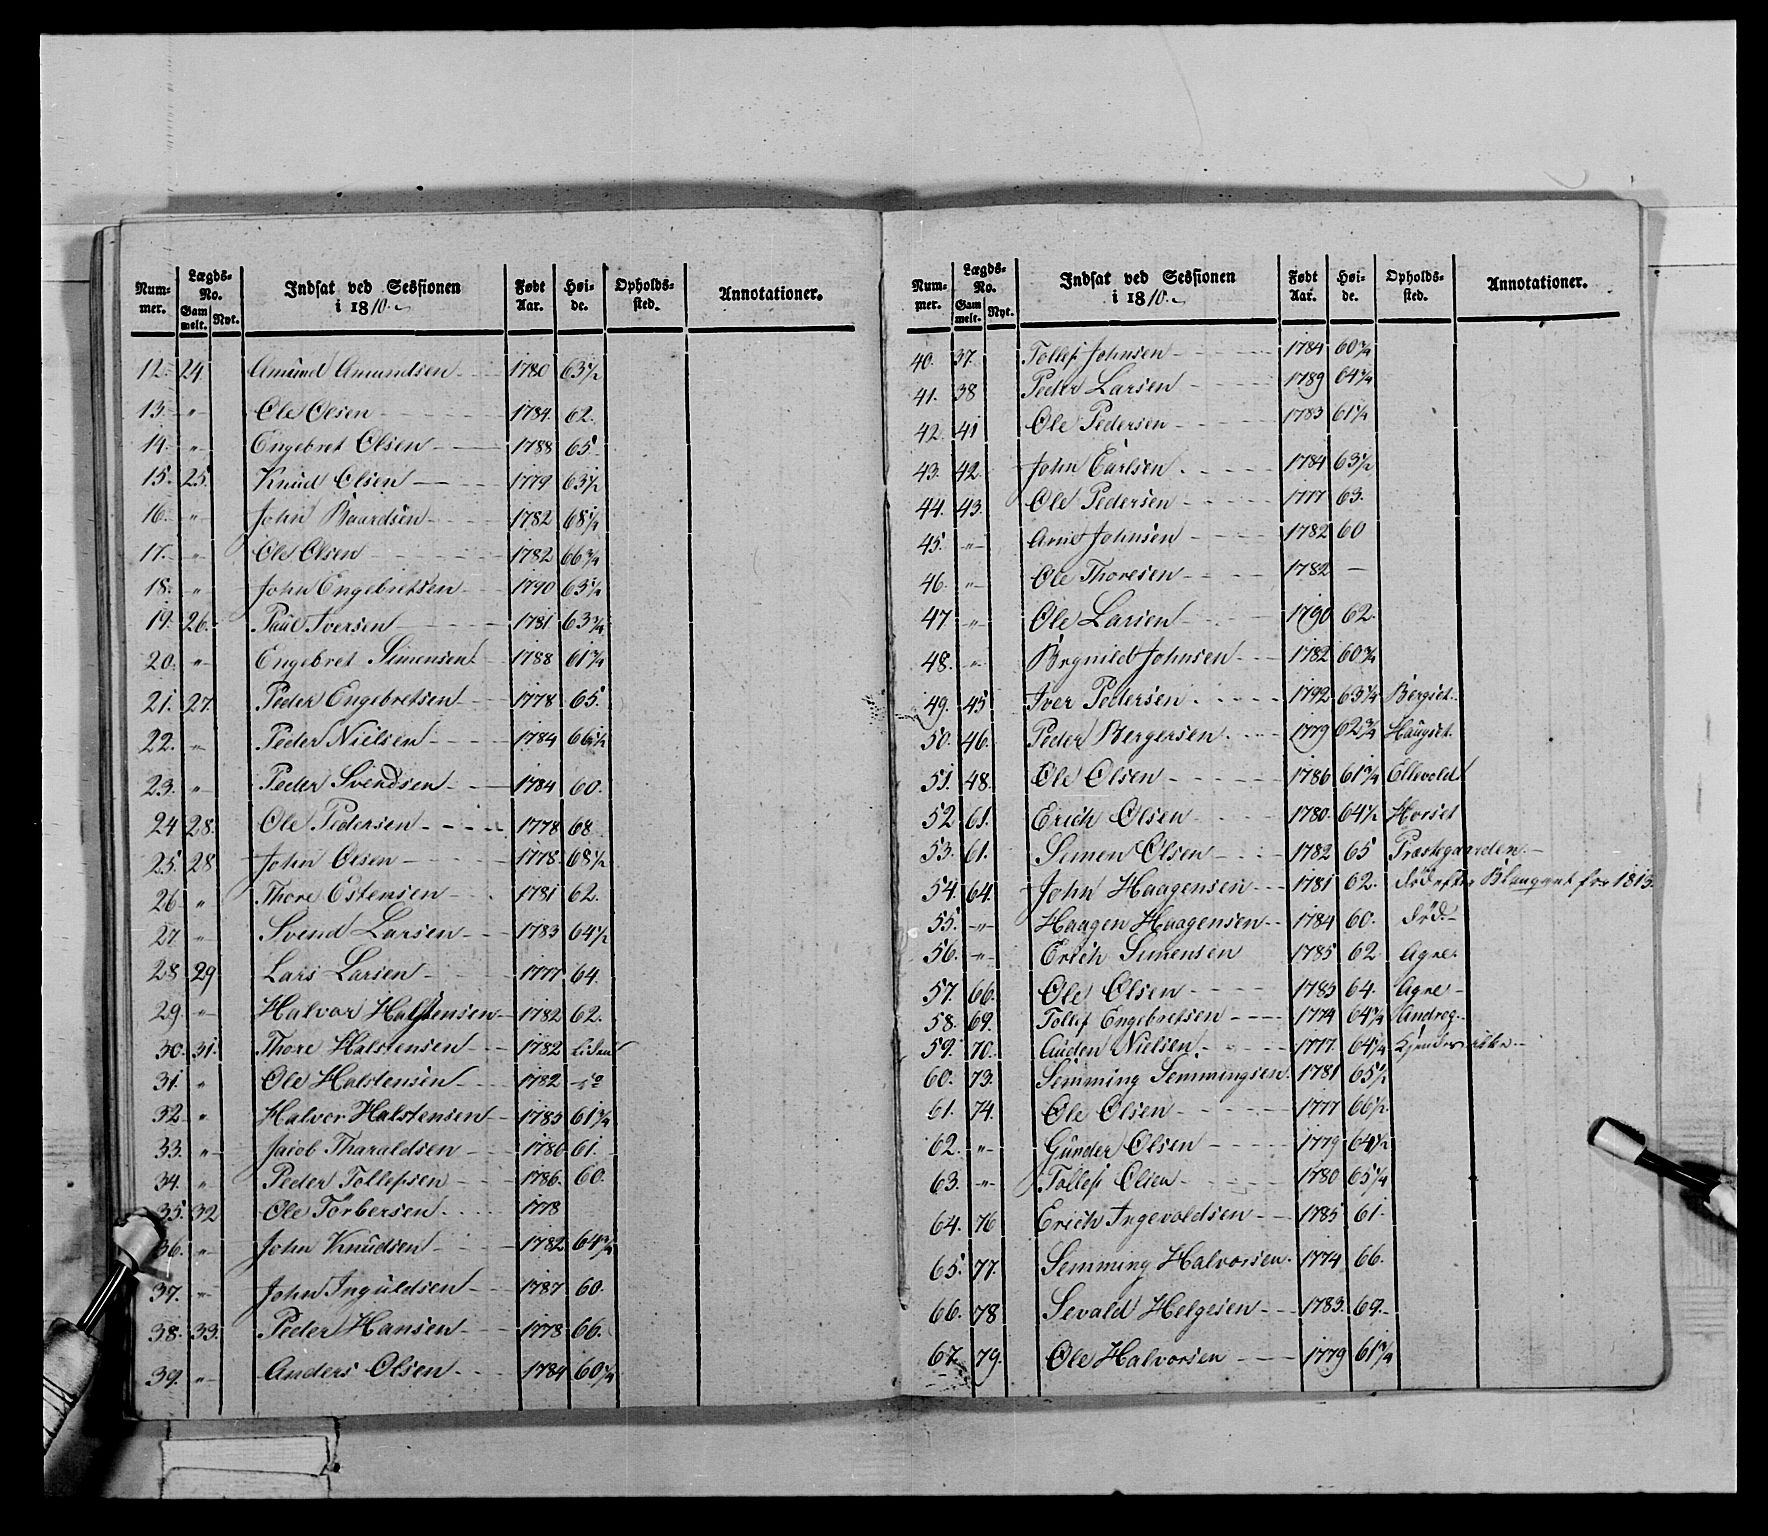 Num-mer. Lægds-No. Gammelt. Nyt. Indsat ved Sessionen i 1810. Født Aar. Høi-de. Opholds-sted. Annotationer.
12. 24 Amund Amundsen 1780 63½
13. " Ole Olsen 1784. 62.
14. " Engebret Olsen 1788 65
15. 25. Knud Olsen 1779 63½
16. " John Baardsen 1782 68¼
17. " Ole Olsen 1782 66¾
18. " John Engebretsen 1790 63¼
19. 26. Paul Iversen 1781 63¾
20. " Engebret Simensen 1788 61¾
21. 27. Peder Engebretsen 1778 65.
22. " Peder Nielsen 1784 66½
23. " Peder Svendsen 1784 60.
24 28. Ole Pedersen 1778 68
25. 28 John Olsen 1778 68½
26 " Thore Estensen 1781 62.
27 " Svend Larsen 1783 64½
28 29 Lars Larsen 1777 64.
29. " Halvor Halstensen 1782 62.
30. 31. Thore Halstensen 1782 liden
31. " Ole Halstensen 1782 do
32 " Halvor Halstensen 1785 61¾
33. " Jacob Tharaldsen 1786 61.
34. " Peder Tollefsen 1786. 60.
35. 32 Ole Torbersen 1778
36. " John Knudsen 1782 64¾
37. " John Inguldsen 1787 60.
38. 33. Peder Hansen 1778 66.
39. " Anders Olsen 1784 60¼
Num-mer. Lægds-No. Gammelt. Nyt. Indsat ved Sessionen i 1810. Født Aar. Høi-de. Opholds-sted. Annotationer.
40. 37. Tollef Johnsen 1784 60¾
41. 38 Peder Larsen 1789 64¾
42. 41 Ole Pedersen 1783 61¼
43. 42. John Carlsen 1784 63½
44. 43. Ole Pedersen 1777 63.
45. " Arne Johnsen 1782 60
46. " Ole Thoresen 1782 —
47 " Ole Larsen 1790 62.
48. " Brynild Johnsen 1782 60¾
49. 45 Iver Pedersen 1792 63¼ Bergset.
50. 46. Peder Bergersen 1779 62¾ Haugset.
51. 48. Ole Olsen 1786 61¾ Ellevold
52 61. Erich Olsen 1780. 64½ Horset
53. 61. Simen Olsen 1782 65 Præstegaarden.
54. 64. John Haagensen 1781 62. død efter for 1813.
55. " Haagen Haagensen 1784 60. død
56. " Erich Simensen 1785 62 Agre.
57. 66. Ole Olsen 1785 64. Agre
58. 69. Tollef Engebretsen 1774 64¼ Andreg.
59. 70. Auden Nielsen 1777. 64¼ Kjendes ikke
60. 73. Semming Semmingsen. 1781 65½
61. 74. Ole Olsen 1777 66½
62. " Gunder Olsen 1779 64½
63. " Tollef Olsen 1780 65¼
64. 76 Erich Ingevoldsen 1785 61.
65. 77. Semming Halvorsen. 1774 66.
66. 78 Sevald Helgesen 1783. 69.
67. 79. Ole Halvorsen 1779 61¾